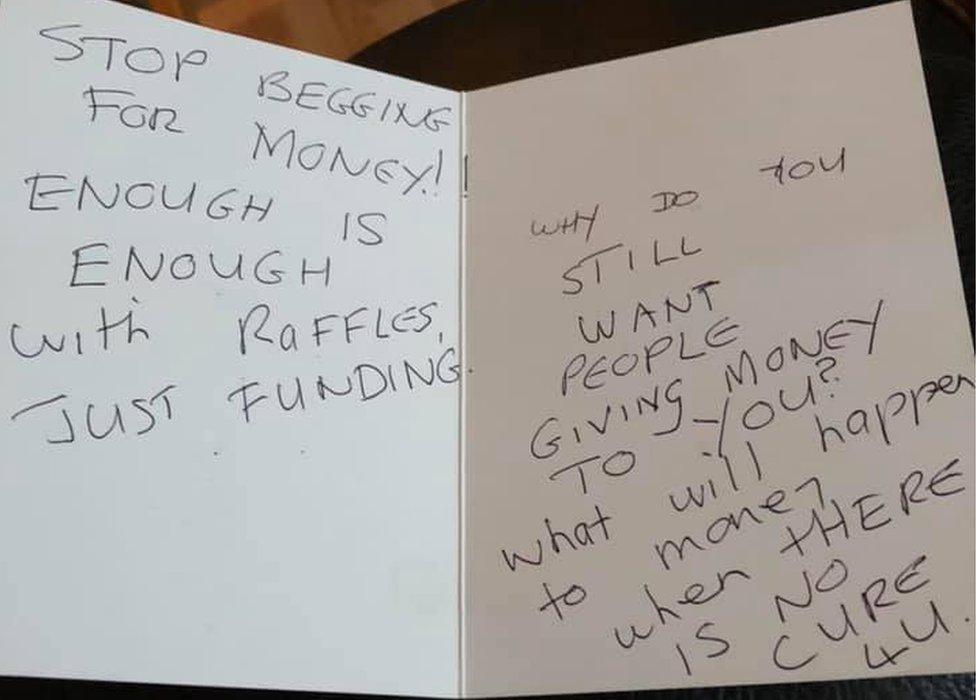 STOP BEGGING
FOR MONEY!!
ENOUGH IS
ENOUGH
with RaFFLES,
JUST FUNDING.
WHY DO YOU
STILL
WANT
PEOPLE
GIVING MONEY
TO YOU?
what will happen
to money
when tHERE
IS NO
CURE
4U.